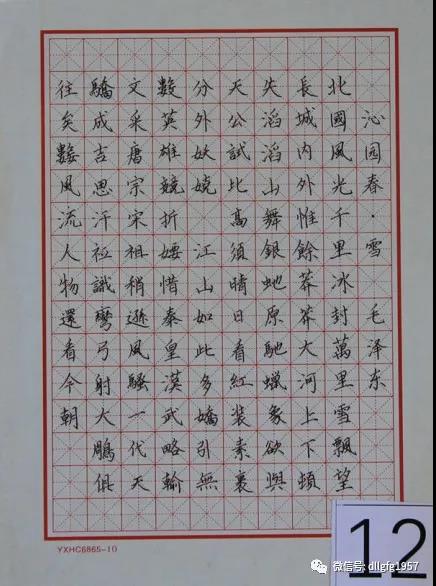 沁园春·雪 毛泽东
北國風光千里冰封萬里雪飄望
長城内外惟餘莽莽大河上下頓
失滔滔山舞銀虵原馳蠟象欲與
天公試比高須晴日看紅装素裹
分外妖嬈 江山如此多嬌引無
數英雄競折腰惜秦皇漢武略輸
文采唐宗宋祖稍遜風騷一代天
驕成吉思汗祗識彎弓射大鵰俱
往矣數風流人物還看今朝
YXHC6865-10
12
微信号: dllgfg1957